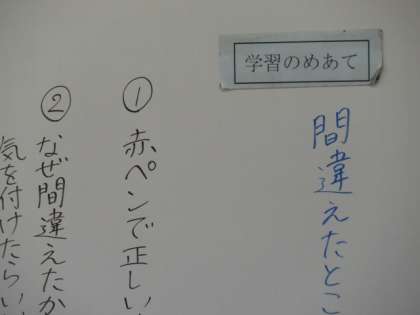 学習のめあて
間違えたとこ
①赤ペンで正しい
②なぜ間違えたか
気を付けたらい